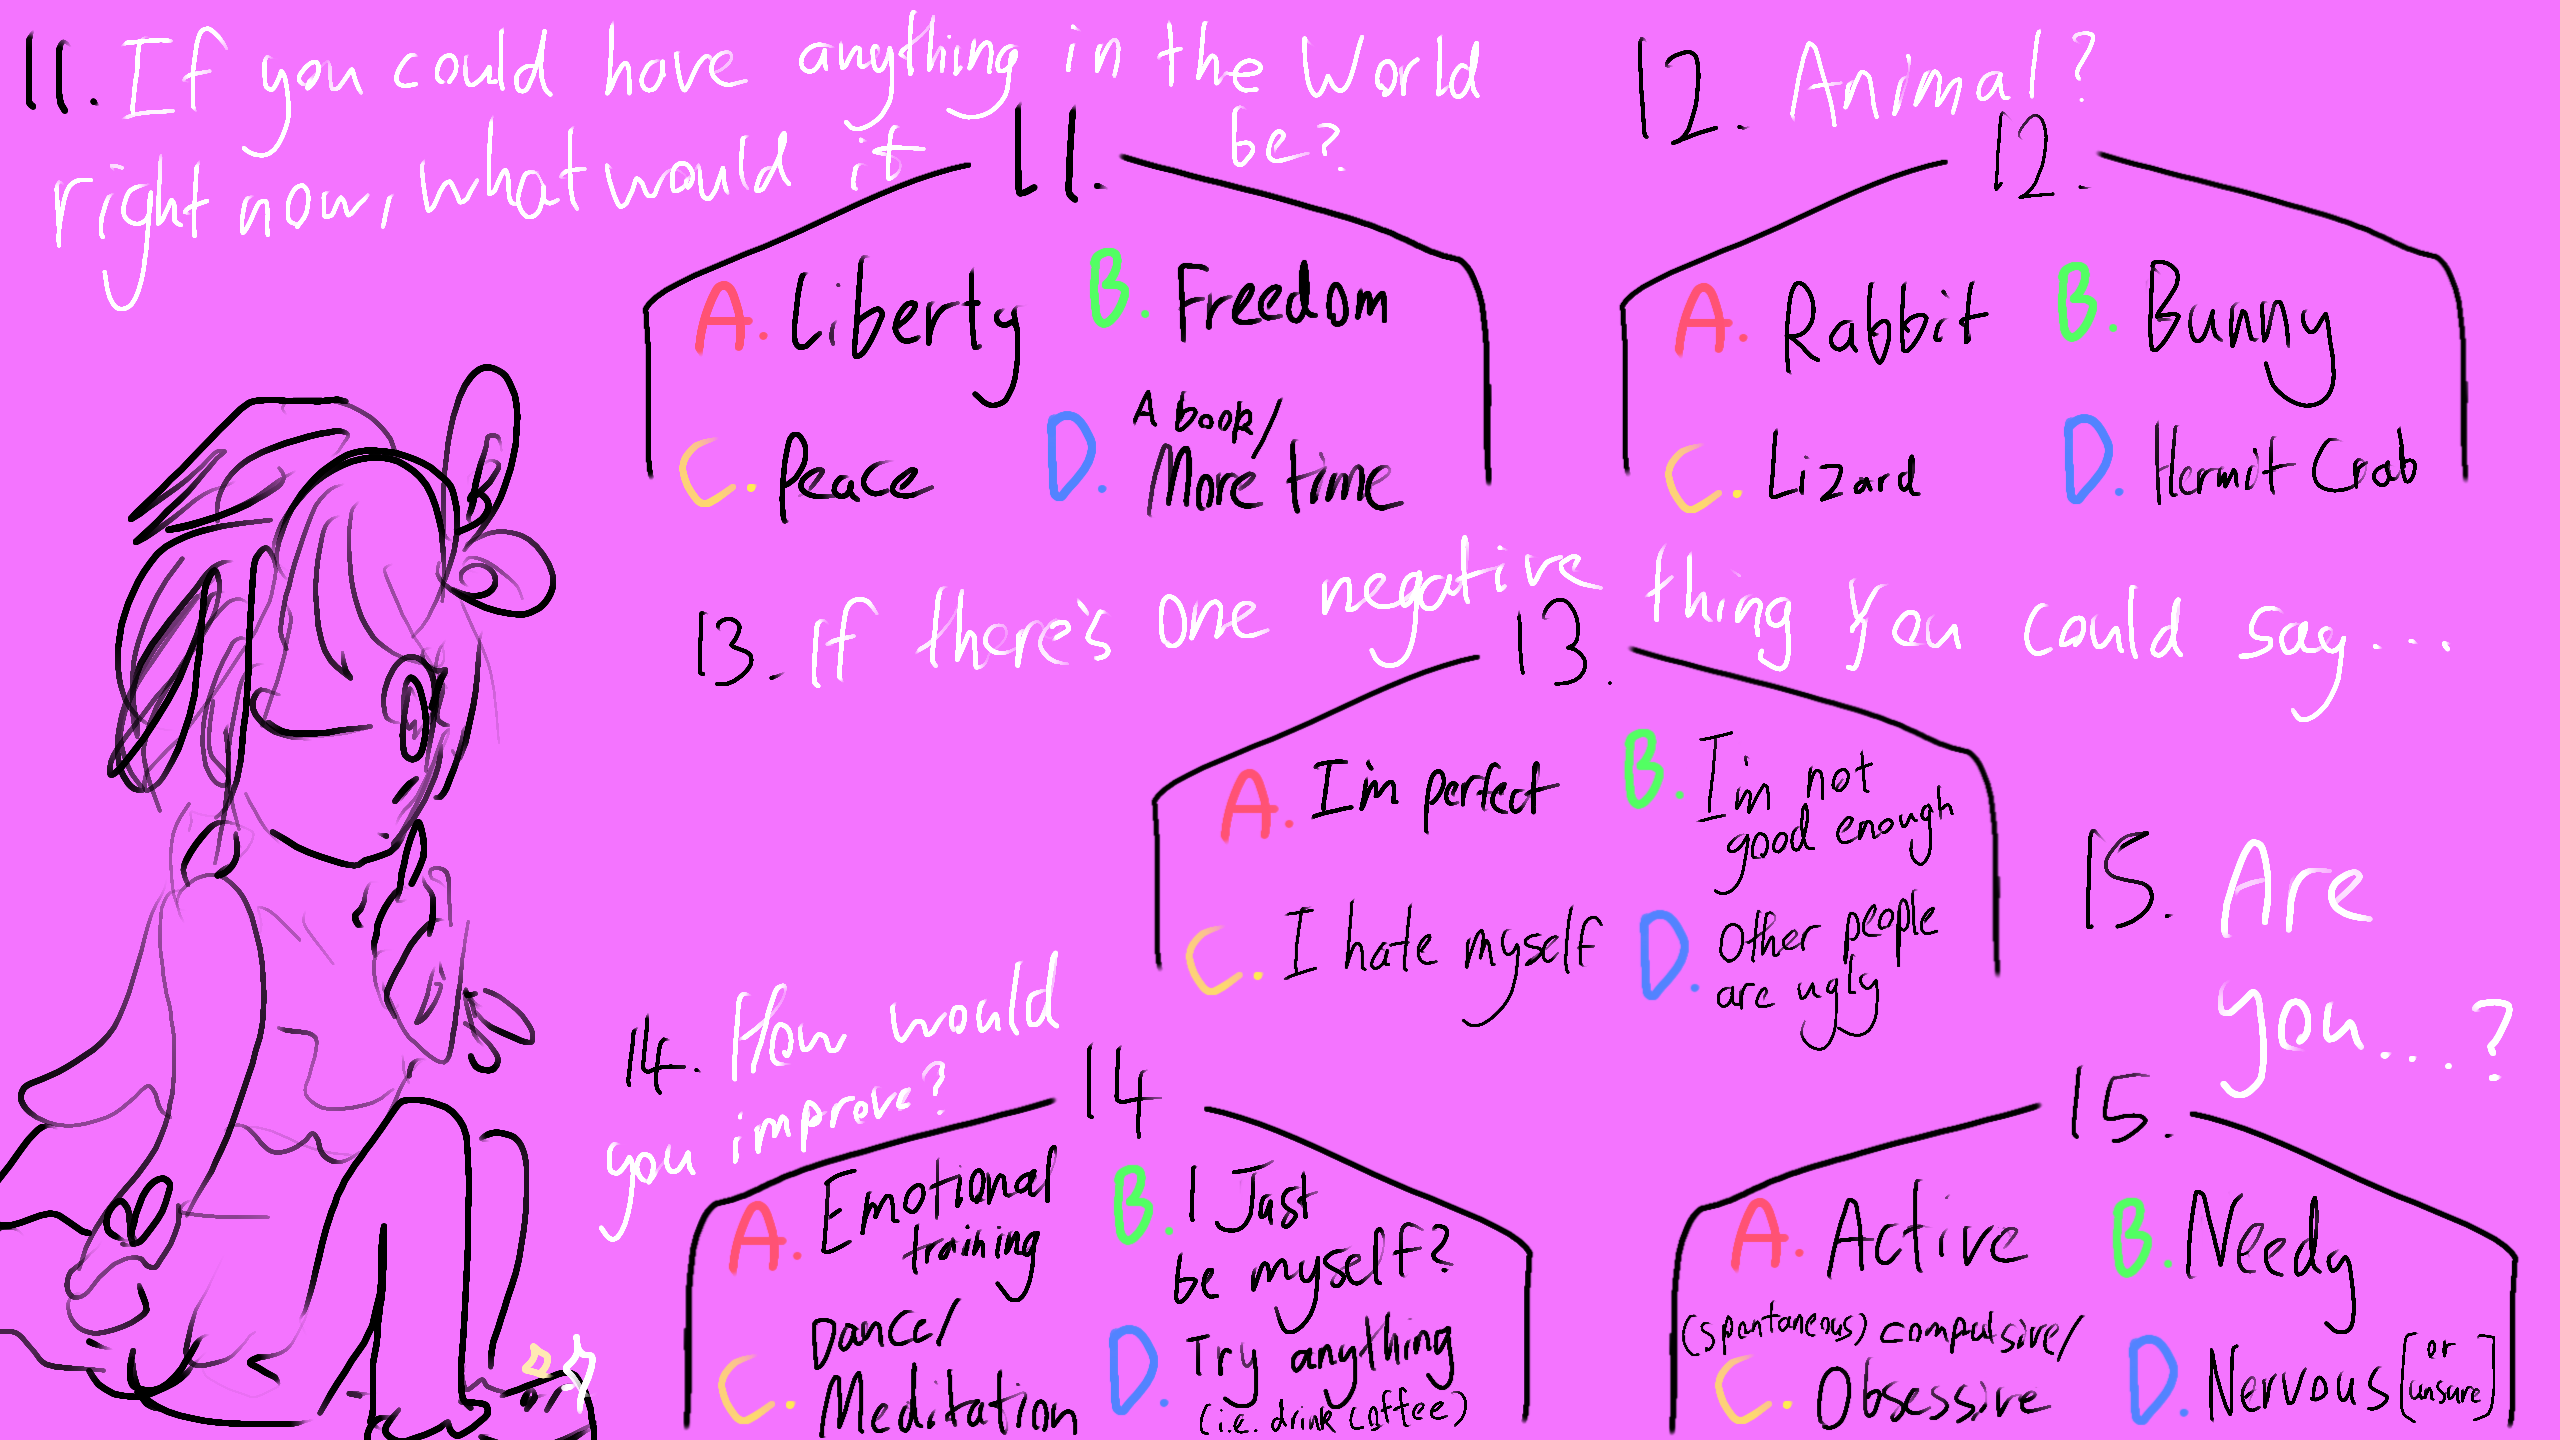 11. If you could have anything in the World
right now, what would it be?
11.
A. Liberty B. Freedom
C. Peace D. A book/
More time
12. Animal?
12.
A. Rabbit B. Bunny
C. Lizard D. Hermit Crab
B
13. If there's one negative thing you could say...
13.
A. I'm perfect B. I'm not
good enough
C. I hate myself D. Other people
are ugly
14. How would
you improve?
14
A. Emotional
training
B. I Just
be myself?
C. Dance/
Meditation
D. Try anything
(i.e. drink coffee)
15. Are
you...?
15.
A. Active B. Needy
(spontaneous) compulsive/
C. Obsessive D. Nervous [or
unsure]